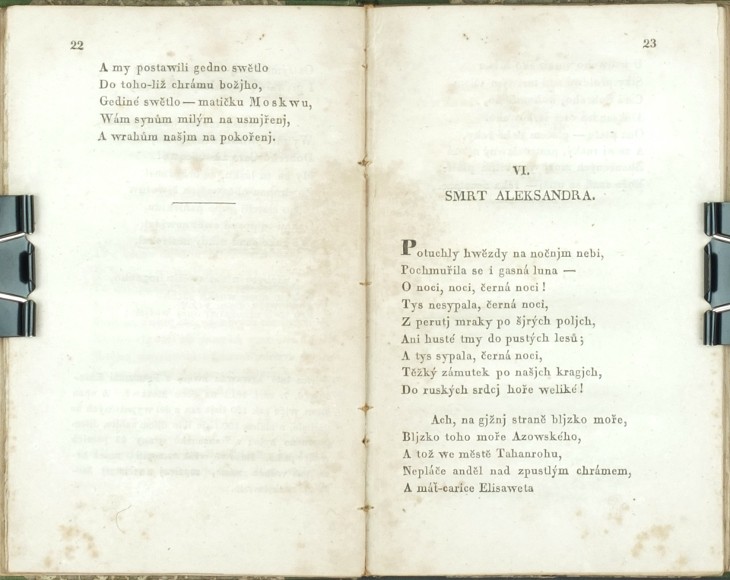 22
A my postawili gedno swětlo
Do toho-liž chrámu božjho,
Gediné swětlo — matičku Moskwu,
Wám synům milým na usmjřenj,
A wrahům našjm na pokořenj.
23
VI.
SMRT ALEKSANDRA.
Potuchly hwězdy na nočnjm nebi,
Pochmuřila se i gasná luna —
O noci, noci, černá noci!
Tys nesypala, černá noci,
Z perutj mraky po šjrých poljch,
Ani husté tmy do pustých lesů;
A tys sypala, černá noci,
Těžký zámutek po našjch kragjch,
Do ruských srdcj hoře weliké!
Ach, na gjžnj straně bljzko moře,
Bljzko toho moře Azowského,
A tož we městě Tahanrohu,
Nepláče anděl nad zpustlým chrámem,
A máť-carice Elisaweta